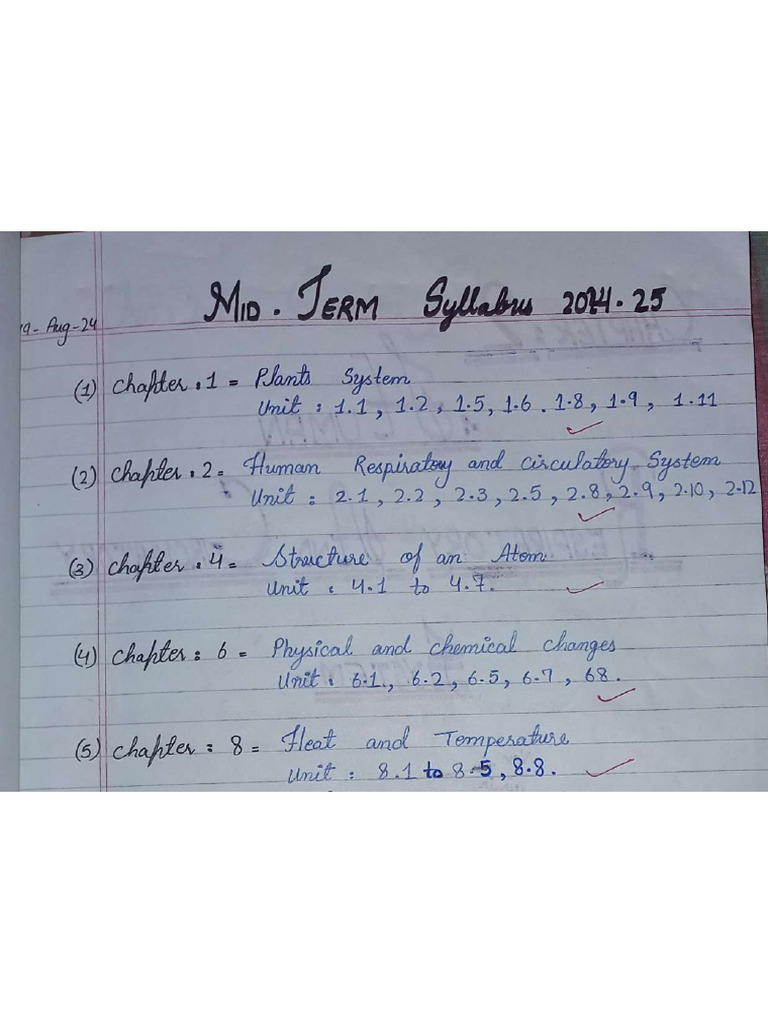 Mid. Term Syllabus 2024-25
19-Aug-24
(1) Chapter: 1 = Plants System
Unit : 1.1, 1.2, 1.5, 1.6. 1.8, 1.9, 1.11
(2) Chapter: 2 = Human Respiratory and Circulatory System
Unit : 2.1, 2.2, 2.3, 2.5, 2.8, 2.9, 2.10, 2.12
(3) Chapter: 4 = Structure of an Atom
Unit : 4.1 to 4.7.
(4) Chapter: 6 = Physical and chemical changes
Unit : 6.1, 6.2, 6.5, 6.7, 68.
(5) Chapter: 8 = Heat and Temperature
Unit : 8.1 to 8.5, 8.8.